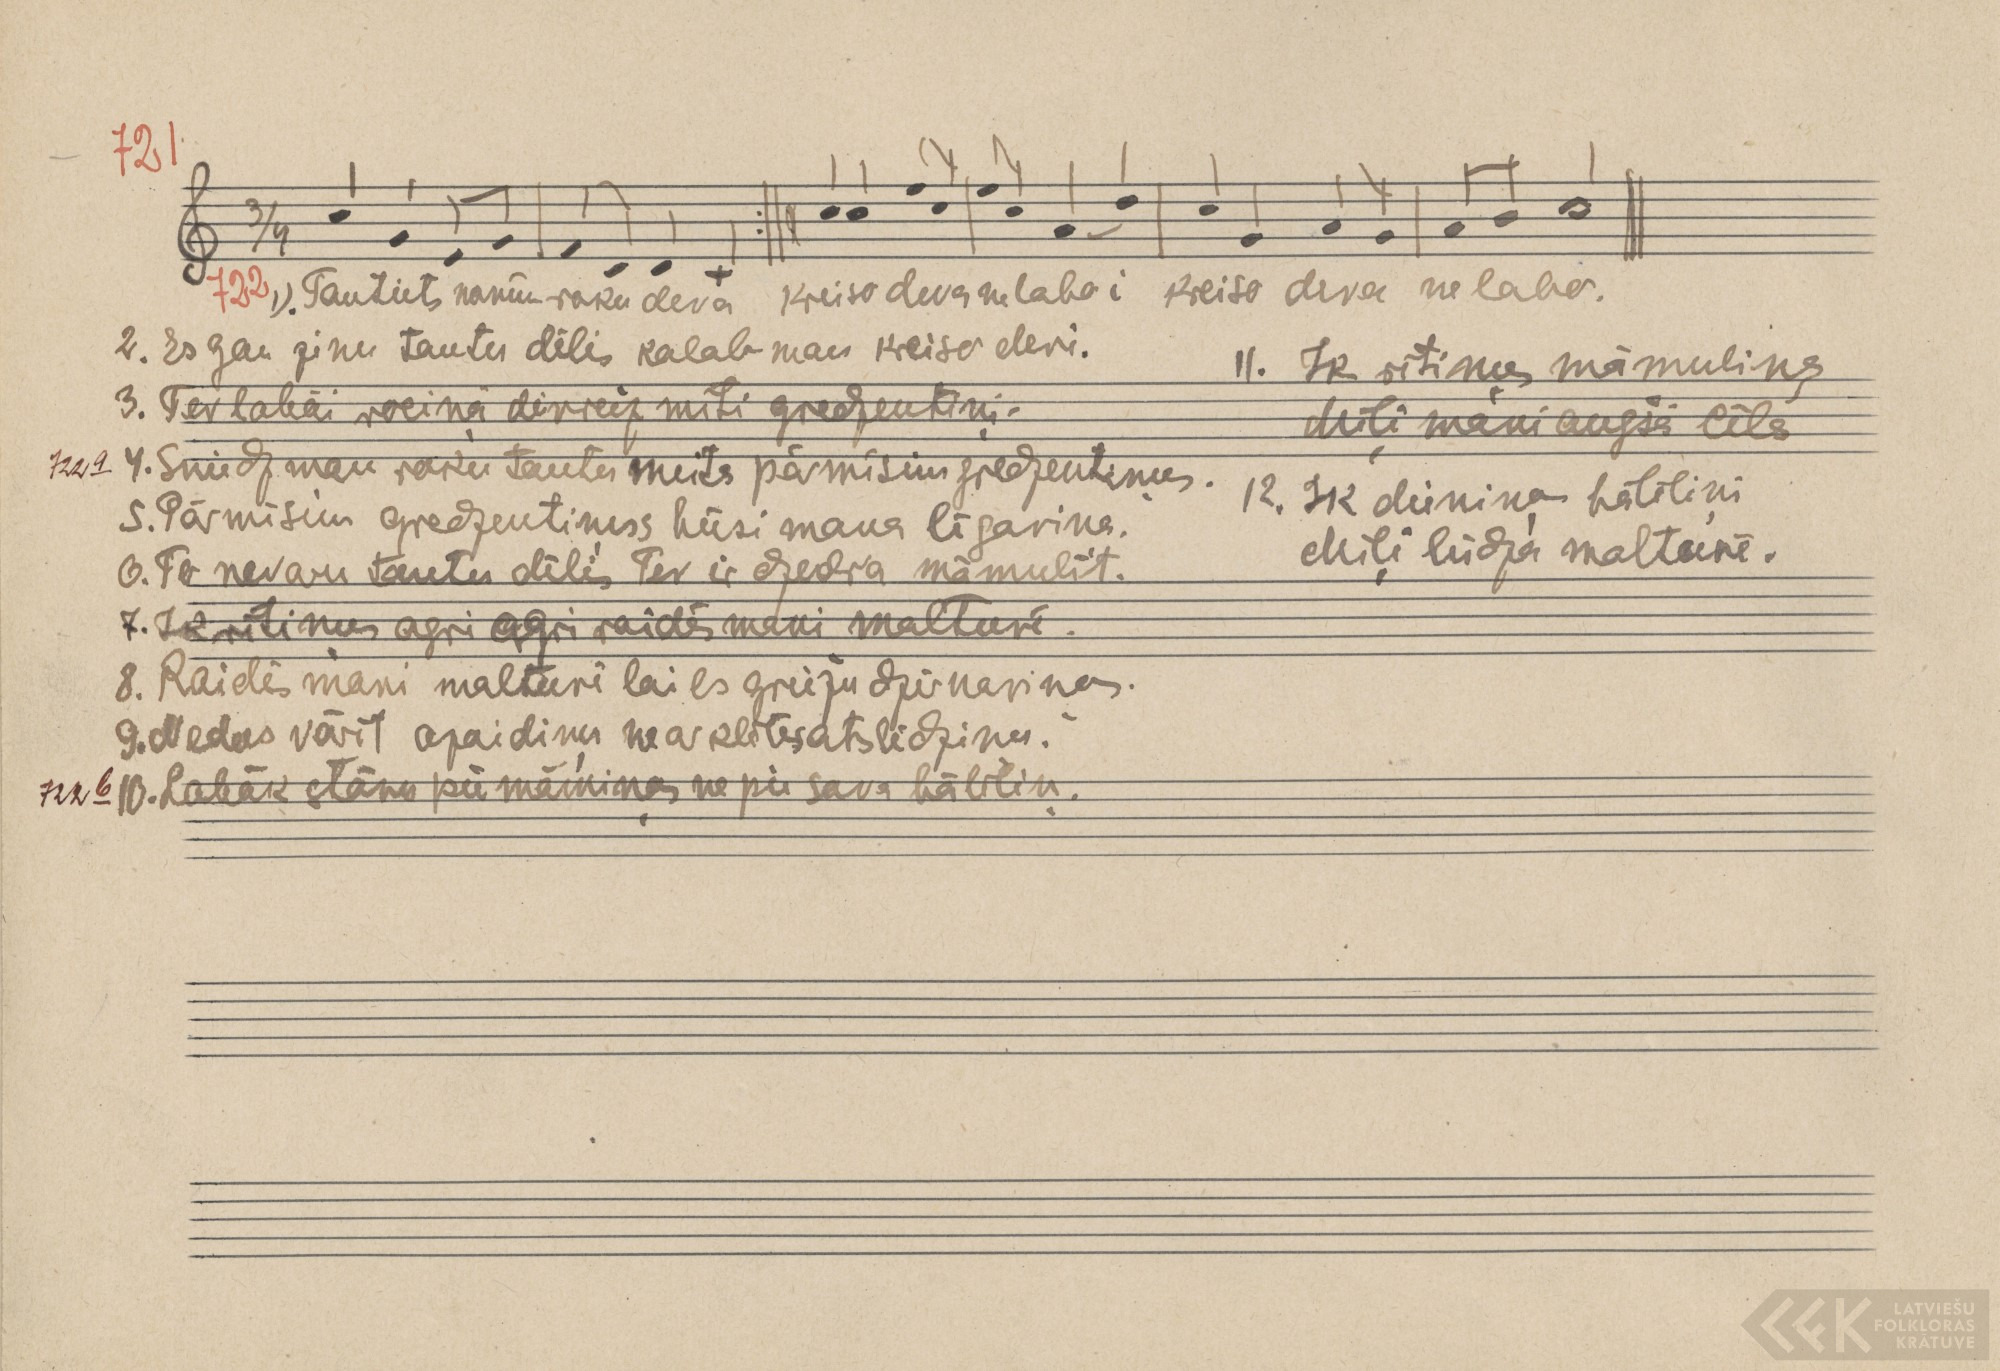 721
3/4
722 1). Tautiets manim roku deva kreiso deva ne labo i kreiso deva ne labo.
2. Es gan zinu tautu dēls kalab man kreiso devi.
3. Tev labāi rociņā divreiz mīti gredzentiņi.
722a 4. Sniedz man roku tautu meita pārmīsim gredzentiņus.
5. Pārmīsim gredzentiņus būsi mana līgaviņa.
6. To nevaru tautu dēls Tev ir dzedra māmulīt.
7. Ik rītiņus agri agri raidēs mani malturē.
8. Raidēs mani malturē lai es griežu dzirnaviņas.
9. Medus vārīt
722b 10. Labāk stāvu pie māmiņas ne pie sava bāliliņ.
11. Ik rītiņus māmuliņa
Miļi mani augšā cēla
12. Ik dieniņas bāliliņi
Miļi lūdza malturē.
LATVIEŠU
FOLKLORAS
KRĀTUVE